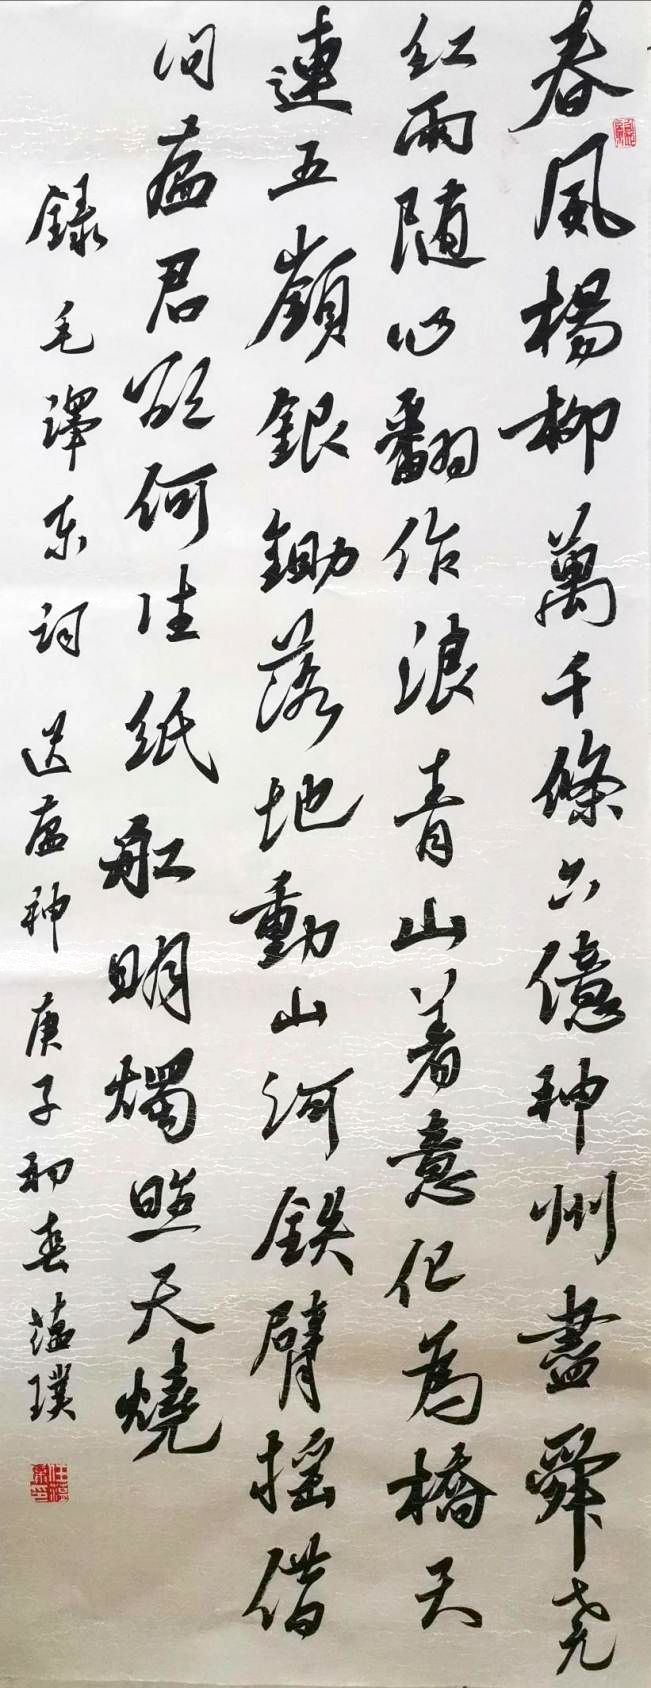 春風楊柳萬千條六億神州盡舜堯
红雨随心翻作浪青山着意化為橋天
連五嶺銀鋤落地動山河鉄臂摇借
问瘟君欲何往纸船明燭照天燒
録毛澤东词送瘟神庚子初春蕴璞